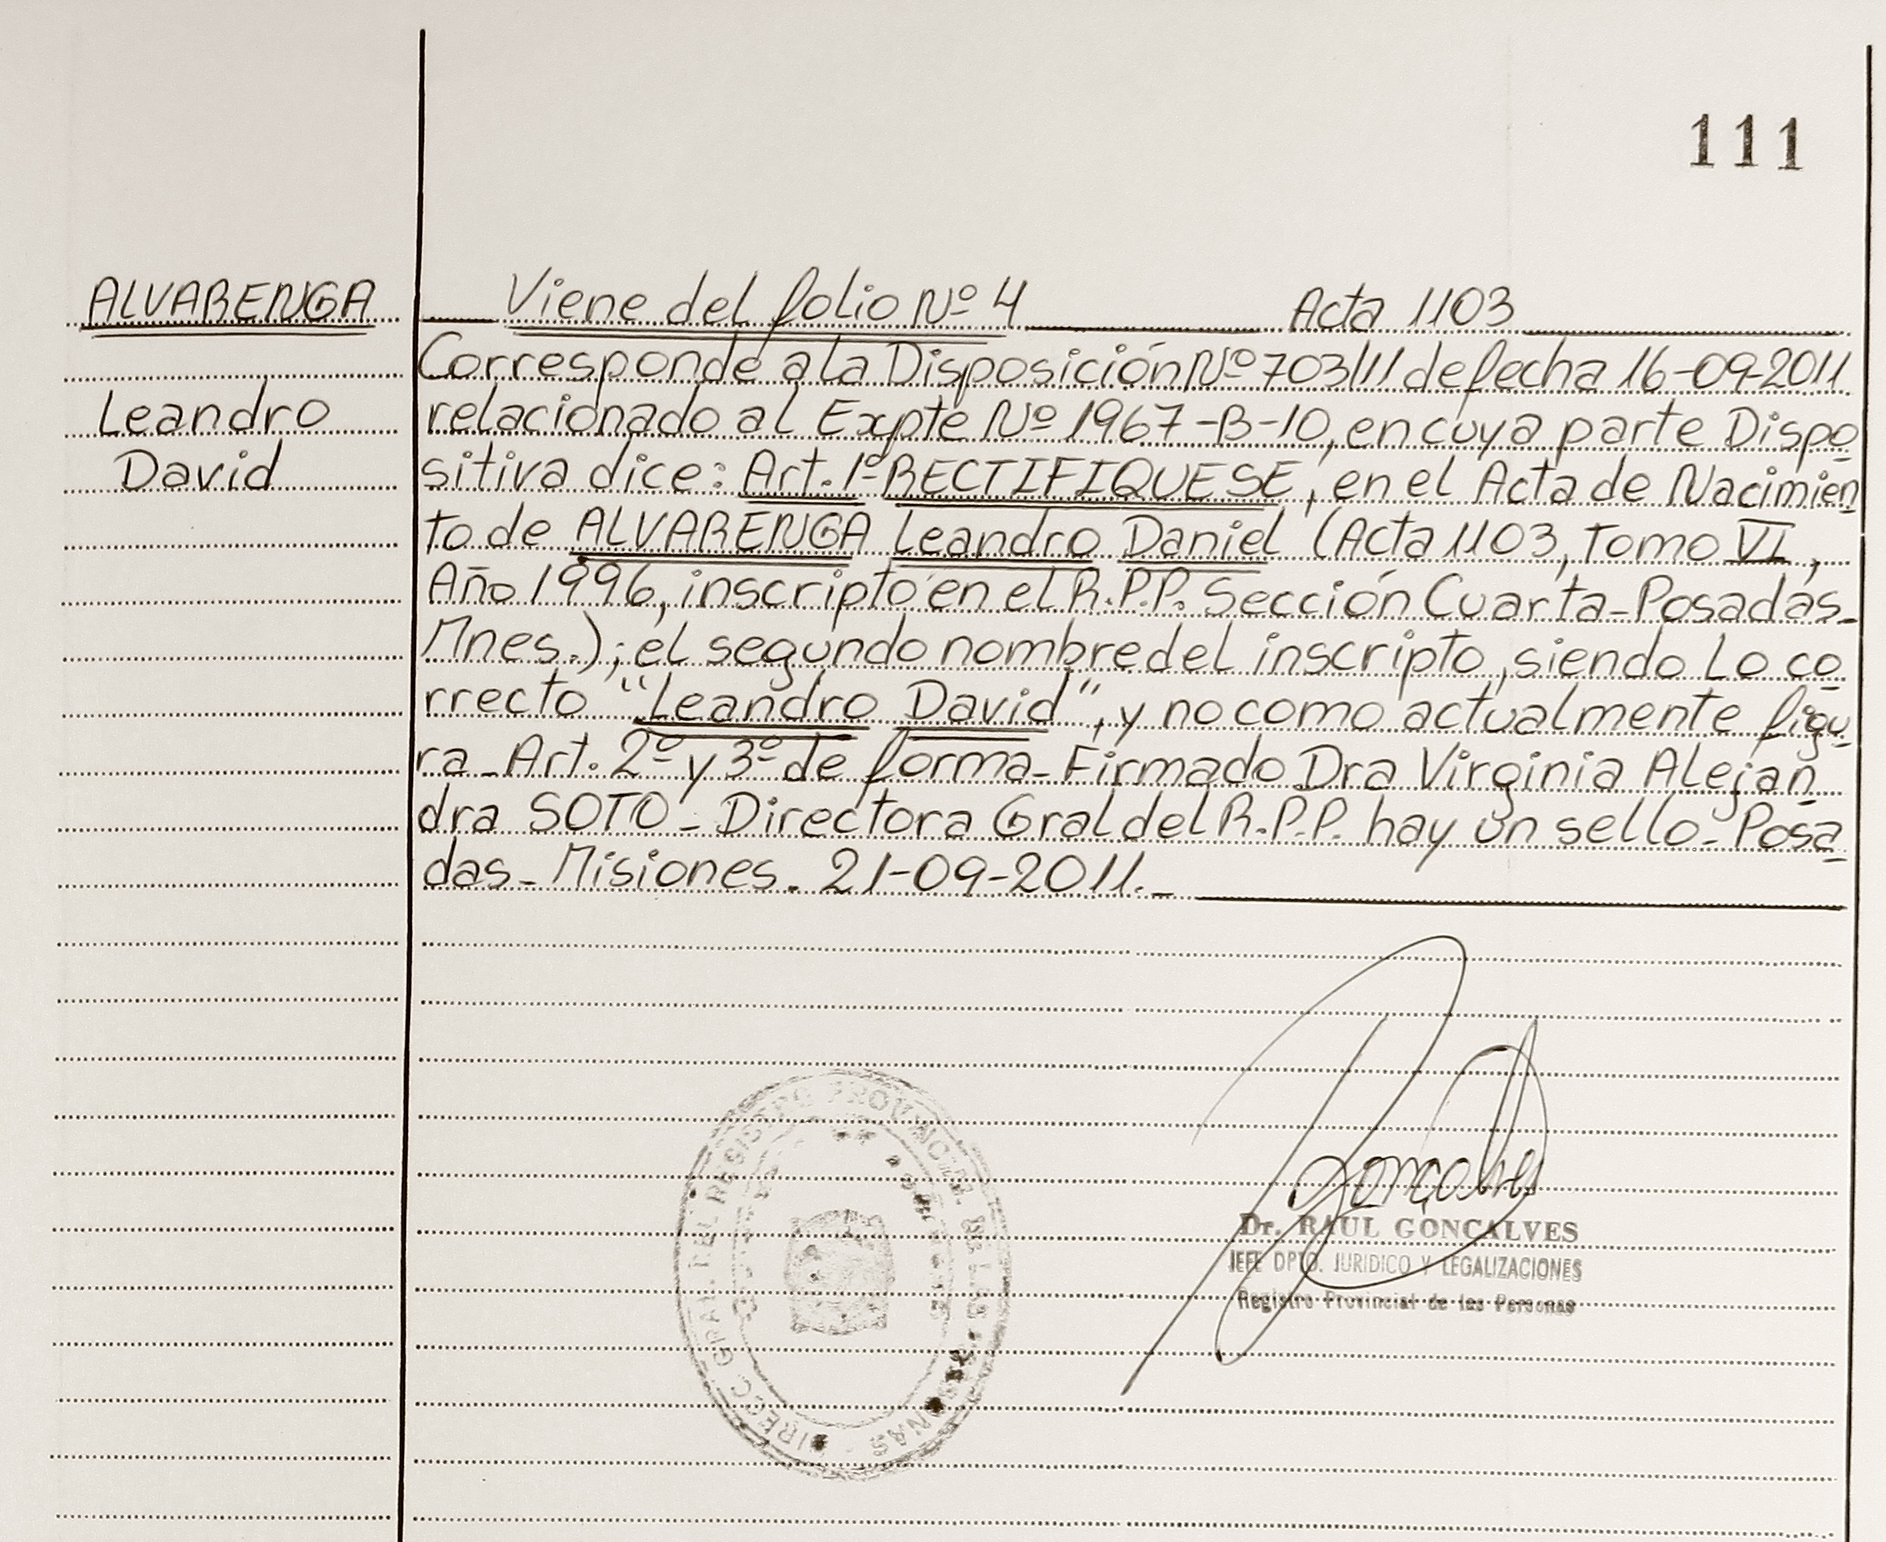 111
ALVARENGA
Leandro
David
Viene del folio Nº 4 Acta 1103
Corresponde a la Disposición Nº 703/11 de fecha 16-09-2011
relacionado al Expte Nº 1967-B-10, en cuya parte Dispo
sitiva dice: Art. 1º RECTIFIQUESE, en el Acta de Nacimien
to de ALVARENGA Leandro Daniel (Acta 1103, Tomo VI,
Año 1996, inscripto en el R.P.P. Sección Cuarta-Posadas-
Mnes.); el segundo nombre del inscripto, siendo Lo co
rrecto "Leandro David", y no como actualmente figu
ra-Art. 2º y 3º de forma-Firmado Dra Virginia Alejan
dra SOTO-Directora Gral del R.P.P. hay un sello-Posa
das-Misiones. 21-09-2011.-
DIRECC. GRAL. DEL REGISTRO PROVINCIAL DE LAS PERSONAS
Goncalves
Dr. RAUL GONCALVES
JEFE DPTO. JURIDICO Y LEGALIZACIONES
Registro Provincial de las Personas